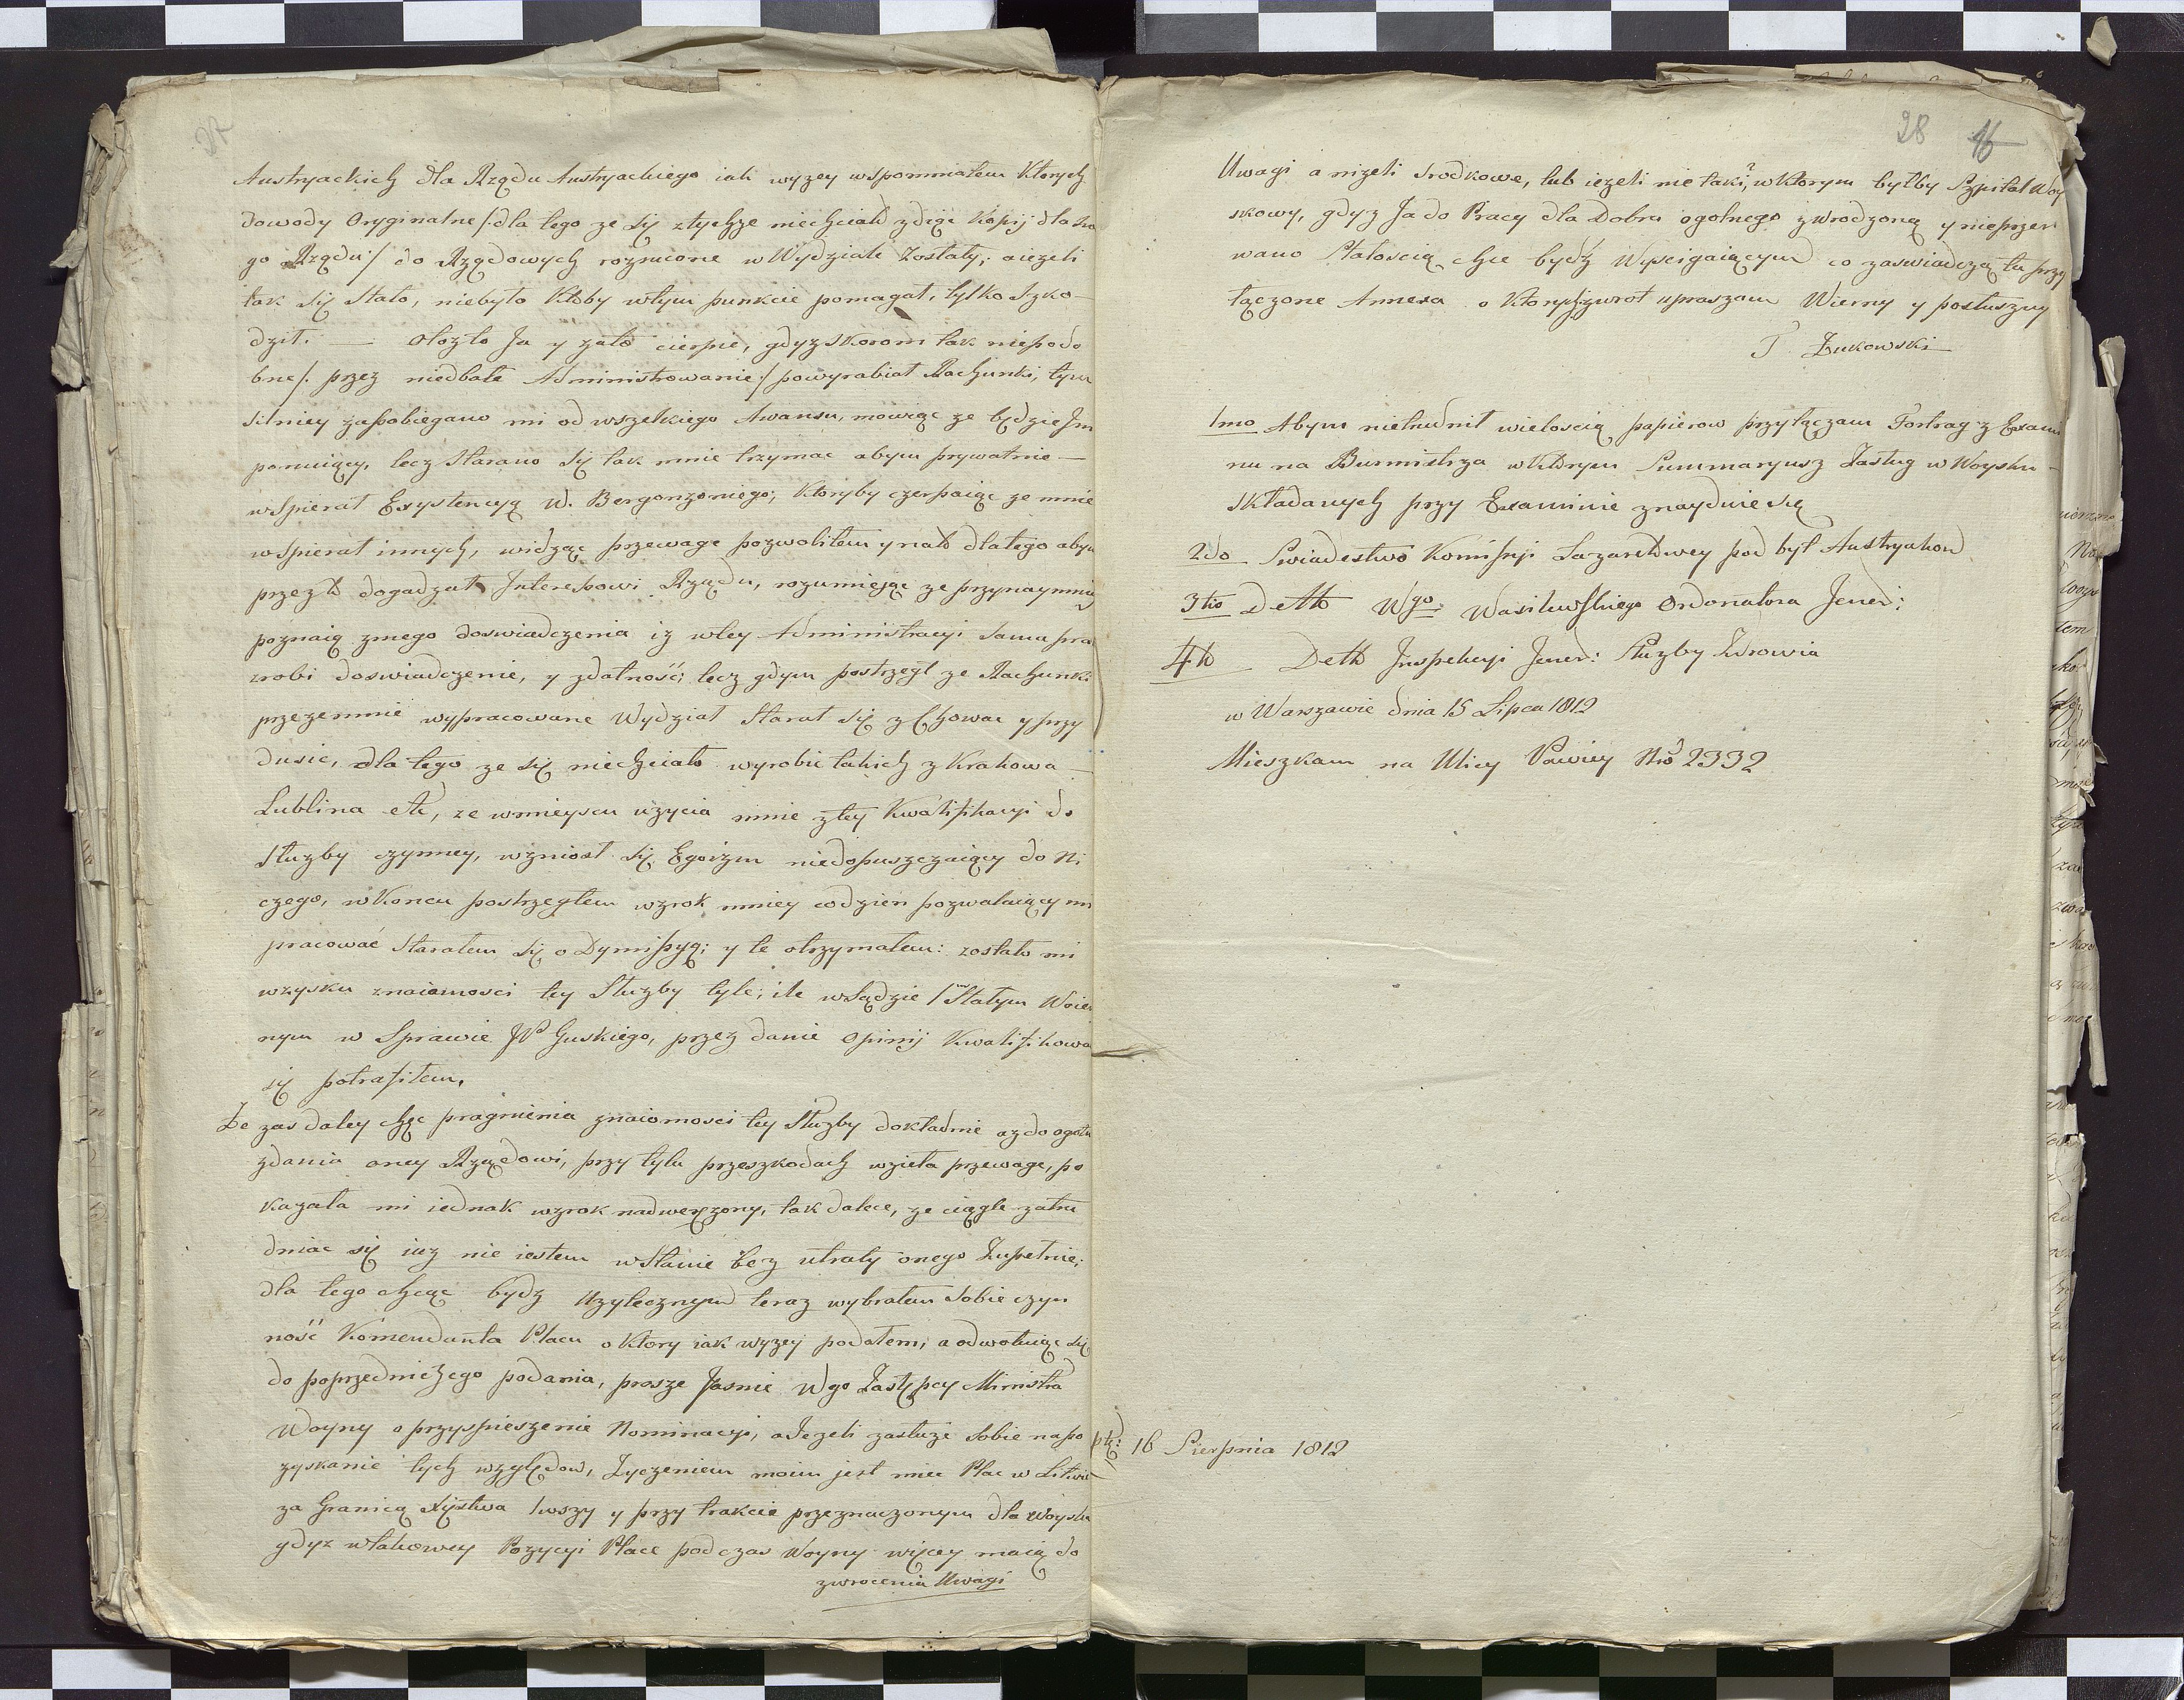 Austryackich dla Rządu Austryackiego iak wyzey wspomniałem Ktorych
dowody Oryginalne /:dla tego ze się ztychze niechciało zdiąc Kopij dla
go Rządu:/ do Rządowych roznione w Wydziale Zostały; aiezeli
tak się Stało, niebyło Ktoby wtym punkcie pomagał, tylko Szko-
dził. — Otozto Ja y zato cierpie, gdyz skorom tak niepodo
bne /: przez niedbałe Administrowanie :/ powyrabiał Rachunki, tym
silniey zapobiegano mi od wszelkiego Awansu, mowiąc ze będzie Im
panuiący, lecz Starano się tak mnie trzymac abym prywatnie —
wspierał Exystencyą W. Bergonzoniego; Ktoryby czerpaiąc ze mnie
wspierał innych, widząc przewagę pozwoliłem y nato dlatego abym
przezto dogadzał Interessowi Rządu, rozumiejąc ze przynaymniey
poznaią zmego doswiadczenia iz wtey Administracyi Sama pra
zrobi doswiadczenie, y zdatność; lecz gdym postrzegł ze Rachunki
przezemnie wypracowane Wydział Starał się zChowac y przy
dusic, dla tego ze się niechciało wyrobic takich z Krakowa —
Lublina etc, ze wmieyscu użycia mnie ztey Kwalifikacyi do
Służby czynney, wzniosł się Egoizm niedopuszczaiący do Ni
czego, wKoncu postrzegłem wzrok mniey codzien pozwalaiący mi
pracować Starałem się o Dymissyą; y te otrzymałem: zostało mi
wzysku znaiomosci tey Służby tyle; ile wSądzie 1m Stałym Woie
nym w Sprawie JP Guskiego, przez danie Opinij Kwalifikowa
się potrafiłem.
Ze zas daley chęc pragnienia znaiomosci tey Służby dokładnie az do ogołu
zdania oney Rządowi, przy tylu przeszkodach wzieła przewage, po
kazała mi iednak wzrok nadweręzony, tak dalece, ze ciągle zatru
dniac się iuz nie iestem wStanie bez utraty onego Zupełnie;
dla tego chcąc bydz Uzytecznym teraz wybrałem Sobie czyn
ność Komendanta Placu o Ktory iak wyzey podałem; a odwołuiąc się
do poprzedniczego podania, prosze Jasnie Wgo Zastępcy Ministra
Woyny o przyspieszenie Nominacyi, aJezeli zasłuże Sobie na po
zyskanie tych względow, Zyczeniem moim jest miec Plac w Litwie
za Granicą Xięstwa 1wszy y przy trakcie przeznaczonym dla Woyska
gdyz wtakowey Pozycyi Place podczas Woyny więcey maią do
zwrocenia Uwagi
28 16
Uwagi a nizeli srodkowe, lub iezeli nie taki, wKtorym byłby Szpital Woy
skowy, gdyz Ja do Pracy dla Dobra ogolnego zwrodzoną y nieprzer
waną Stałoscią chce bydz Wyscigaiącym co zaswiadczą tu przy
łączone Annexa o Ktorych zwrot upraszam Wierny y posłuszny
T Żukowski
1mo Abym nietrudnił wieloscią papierow przyłączam Fortrag z Exami
nu na Burmistrza wKtorym Summaryusz Zasług w Woysku —
składanych przy Examinie znayduie się
2do Swiadestwo Komissyi Lazaretowey pod był Austryakow
3tio Detto Wgo Wasilewskiego Ordonatora Jener:
4to Detto Inspekcyi Jener: Służby Zdrowia
w Warszawie dnia 15 Lipca 1812
Mieszkam na Ulicy Pawiey Nro 2332
16 Sierpnia 1812